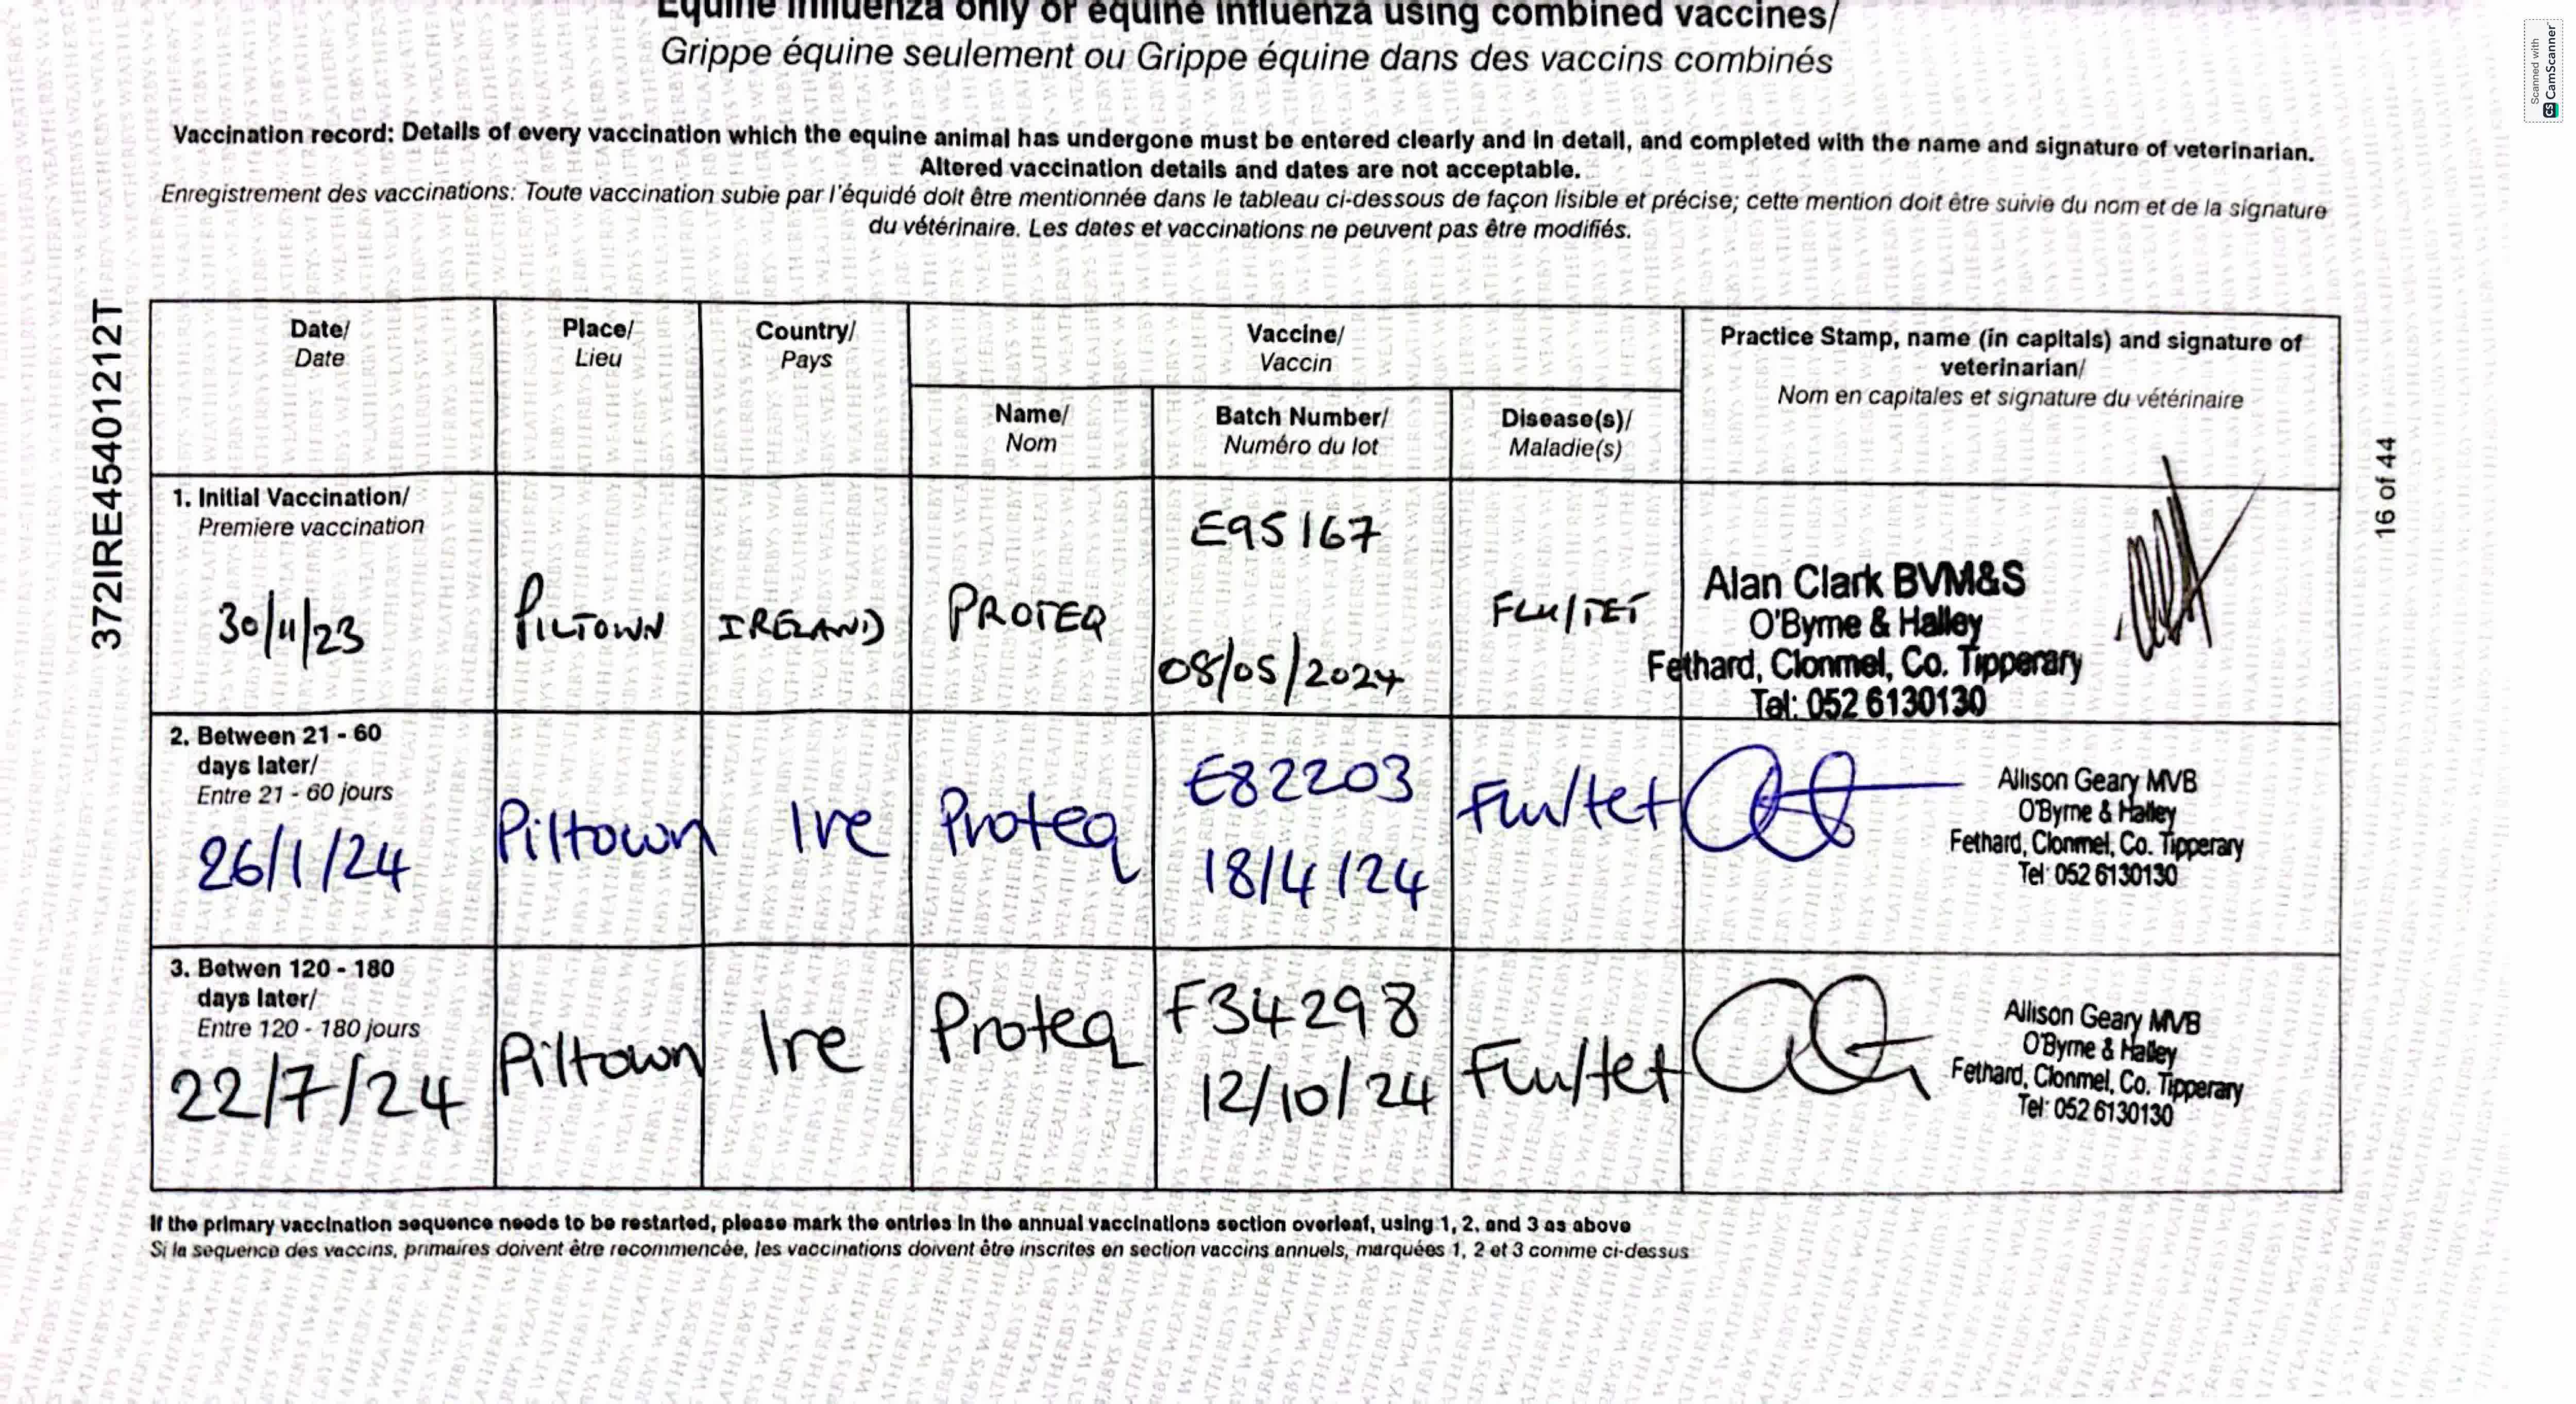 Equine Influenza only or equine influenza using combined vaccines/
Grippe équine seulement ou Grippe équine dans des vaccins combinés
Scanned with
CS CamScanner
Vaccination record: Details of every vaccination which the equine animal has undergone must be entered clearly and in detail, and completed with the name and signature of veterinarian.
Altered vaccination details and dates are not acceptable.
Enregistrement des vaccinations: Toute vaccination subie par l'équidé doit être mentionnée dans le tableau ci-dessous de façon lisible et précise; cette mention doit être suivie du nom et de la signature
du vétérinaire. Les dates et vaccinations ne peuvent pas être modifiés.
372IRE45401212T
16 of 44
Date/
Date
Place/
Lieu
Country/
Pays
Vaccine/
Vaccin
Name/
Nom
Batch Number/
Numéro du lot
Disease(s)/
Maladie(s)
Practice Stamp, name (in capitals) and signature of
veterinarian/
Nom en capitales et signature du vétérinaire
1. Initial Vaccination/
Premiere vaccination
30/11/23
PILTOWN
IRELAND
PROTEQ
E95167
08/05/2024
FLU/TET
Alan Clark BVM&S
O'Byrne & Halley
Fethard, Clonmel, Co. Tipperary
Tel: 052 6130130
2. Between 21 - 60
days later/
Entre 21 - 60 jours
26/1/24
Piltown
Ire
Proteq
E82203
18/4/24
Flu/tet
Allison Geary MVB
O'Byrne & Halley
Fethard, Clonmel, Co. Tipperary
Tel: 052 6130130
3. Betwen 120 - 180
days later/
Entre 120 - 180 jours
22/7/24
Piltown
Ire
Proteq
F34298
12/10/24
Flu/tet
Allison Geary MVB
O'Byrne & Halley
Fethard, Clonmel, Co. Tipperary
Tel: 052 6130130
If the primary vaccination sequence needs to be restarted, please mark the entries in the annual vaccinations section overleaf, using 1, 2, and 3 as above
Si la sequence des vaccins, primaires doivent être recommencée, les vaccinations doivent être inscrites en section vaccins annuels, marquées 1, 2 et 3 comme ci-dessus